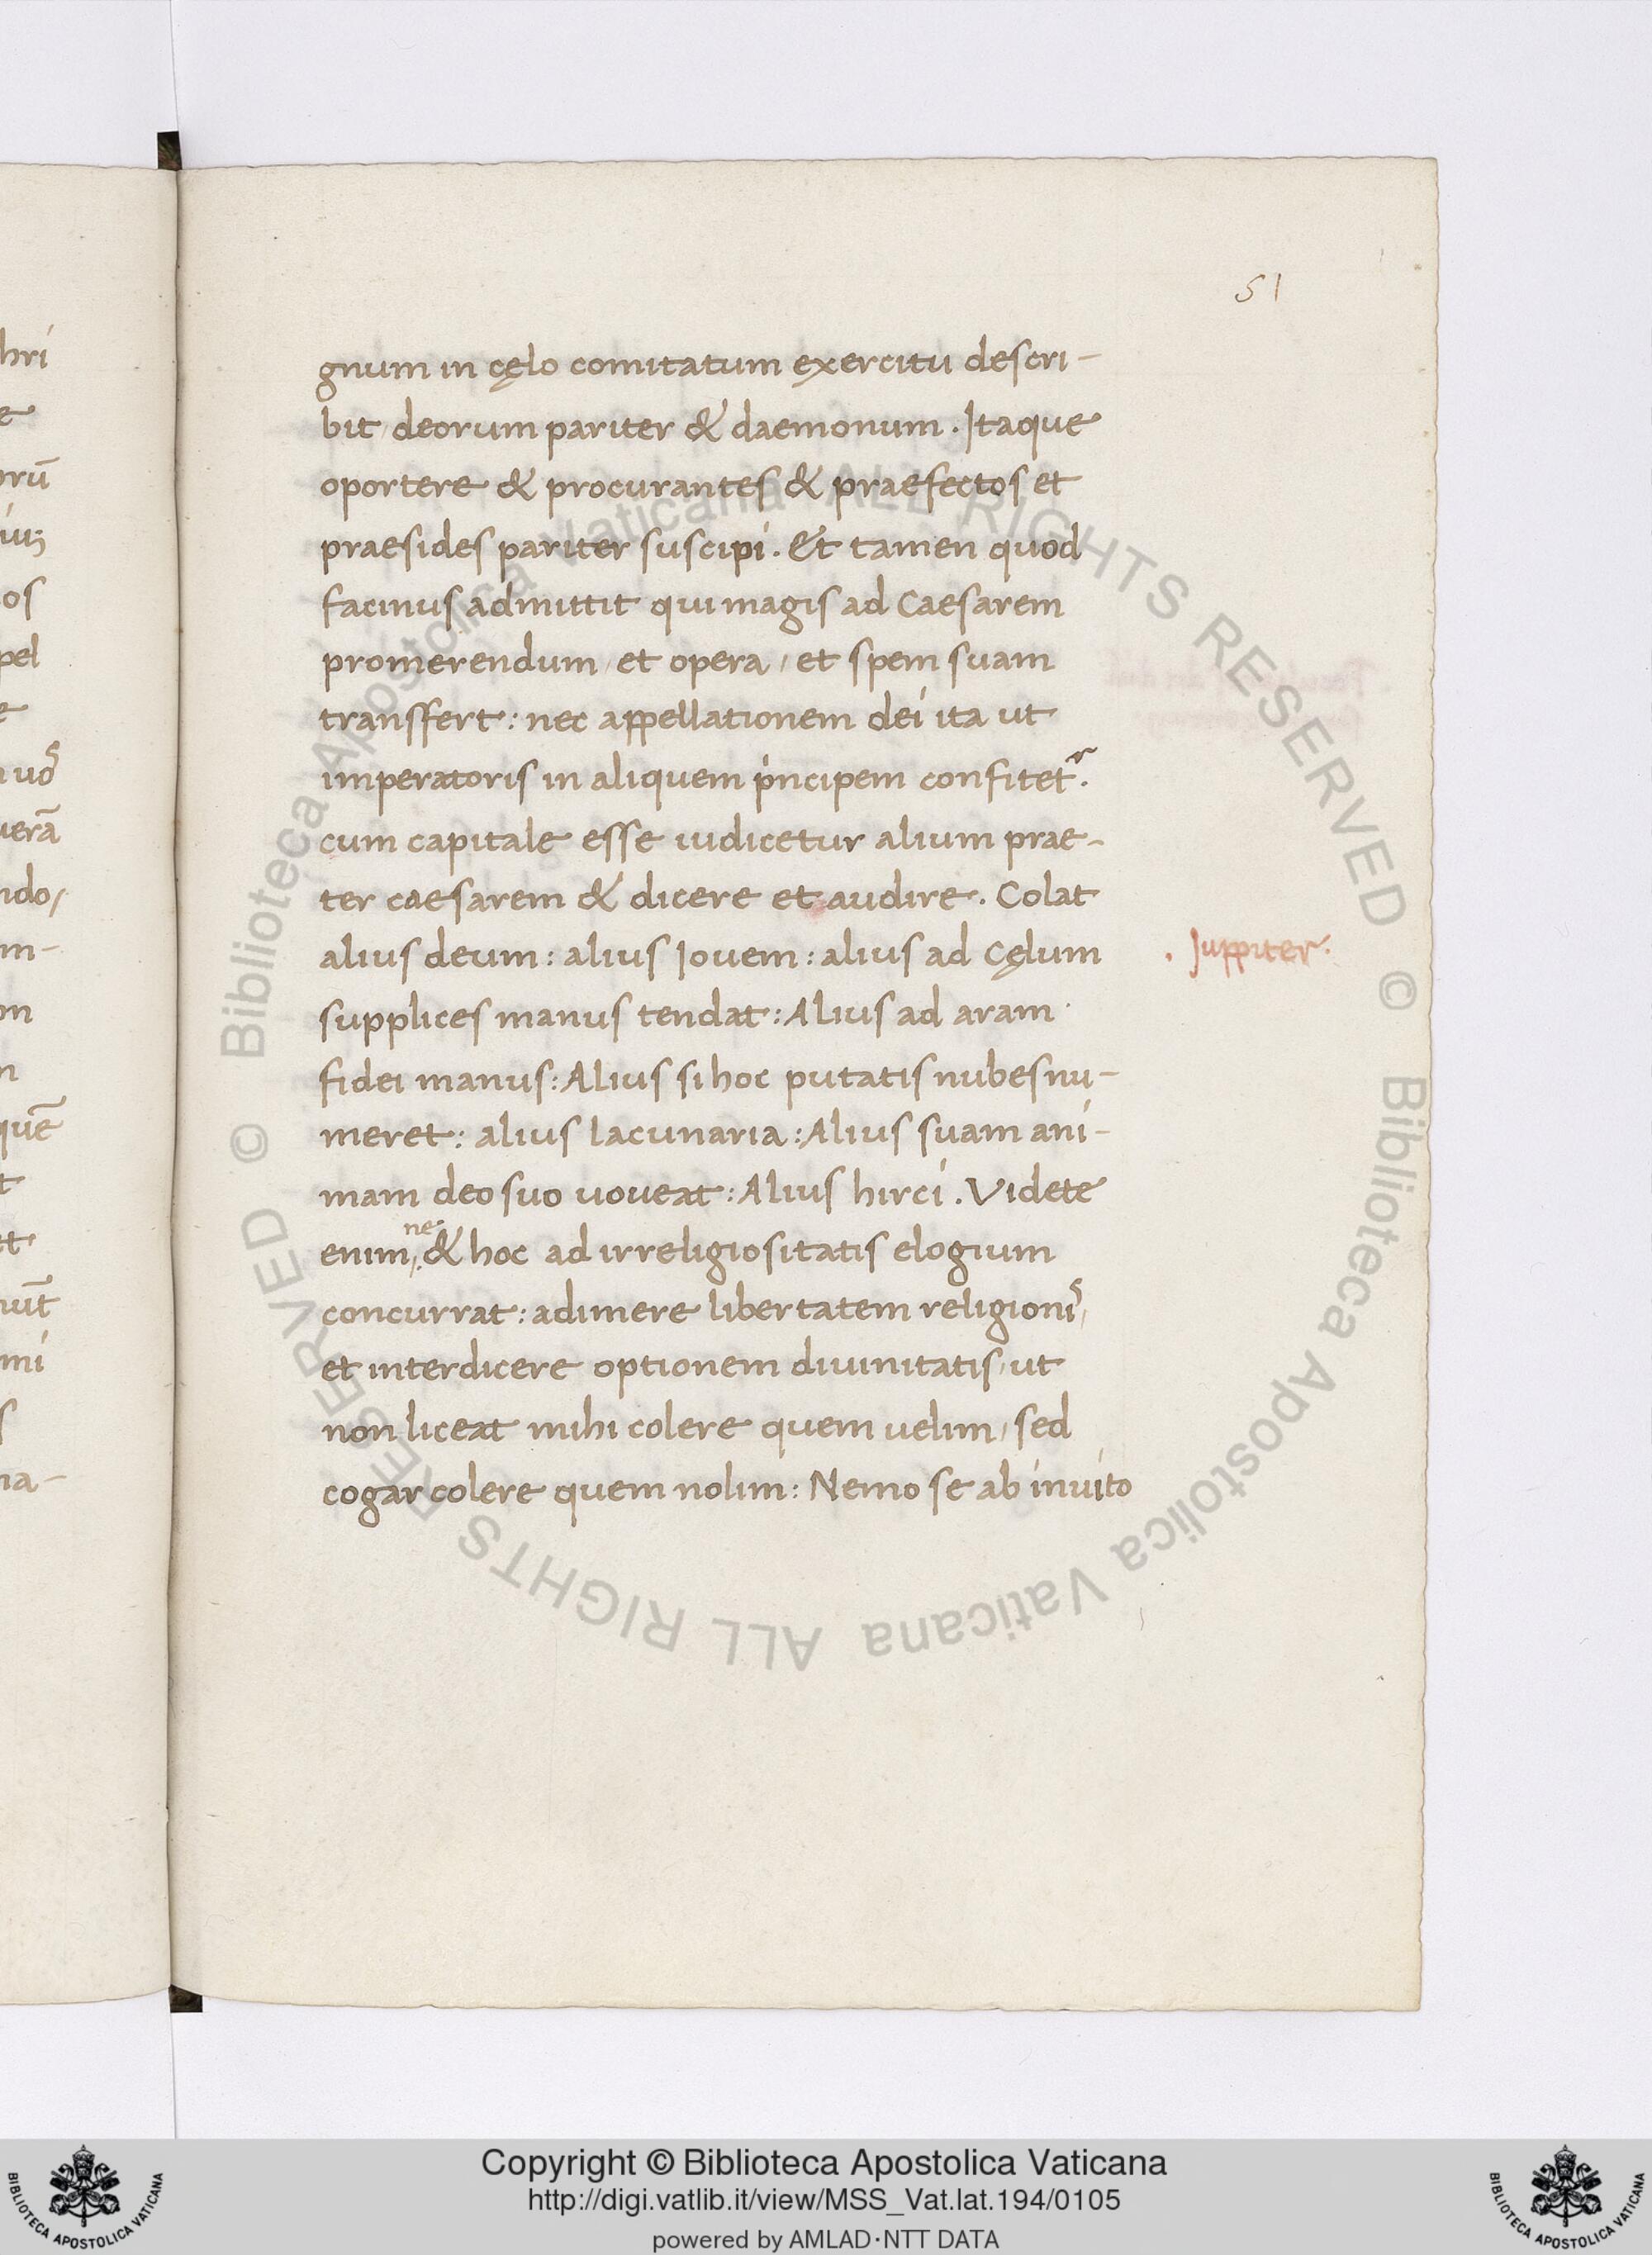 51
gnum in cęlo comitatum exercitu descri-
bit deorum pariter & daemonum. Itaque
oportere & procurantes & praefectos et
praesides pariter suscipi. Et tamen quod
facinus admittit qui magis ad Caesarem
promerendum / et opera / et spem suam
transfert: nec appellationem dei ita ut
imperatoris in aliquem pincipem confitetr.
cum capitale esse iudicetur alium prae-
ter caesarem & dicere et audire. Colat
alius deum: alius Iovem: alius ad Cęlum
. Juppiter.
supplices manus tendat: Alius ad aram
fidei manus: Alius si hoc putatis nubes nu-
meret: alius lacunaria: Alius suam ani-
mam deo suo uoveat: Alius hirci. Videte
enim, ne & hoc ad irreligiositatis elogium
concurrat: adimere libertatem religionis,
et interdicere optionem diuinitatis, ut
non liceat mihi colere quem uelim, sed
cogar colere quem nolim: Nemo se ab inuito
hri
e
orū
ius
os
pel
e
uos
uerā
ndo,
m-
on
n
quē
t
tt
uūt
mi
s
na-
© Biblioteca Apostolica Vaticana ALL RIGHTS RESERVED
© Biblioteca Apostolica Vaticana ALL RIGHTS RESERVED
Copyright © Biblioteca Apostolica Vaticana
http://digi.vatlib.it/view/MSS_Vat.lat.194/0105
powered by AMLAD·NTT DATA
BIBLIOTECA APOSTOLICA VATICANA
BIBLIOTECA APOSTOLICA VATICANA